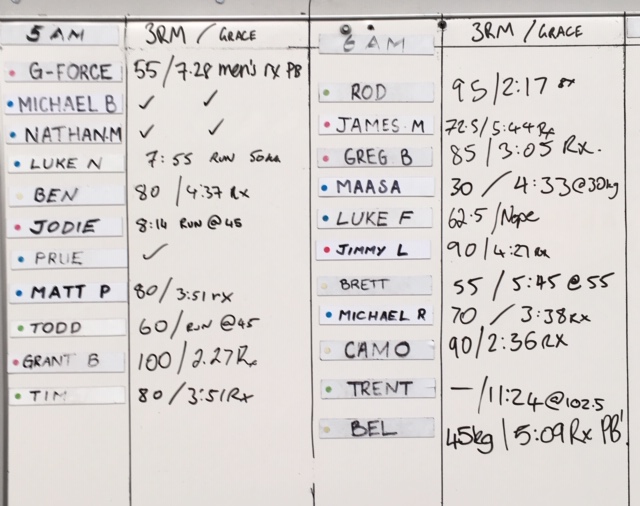 5 AM 3RM / GRACE
G-FORCE 55/7.28 men's rx PB
MICHAEL B ✓ ✓
NATHAN.M ✓ ✓
LUKE N 7:55 RUN
BEN 80 /4:37 Rx
JODIE 8:14 RUN @ 45
PRUE ✓
MATT P 80/3:51 rx
TODD 60/RUN @45
GRANT B 100/2.27Rx
TIM 80/3:51Rx
6 AM 3RM /GRACE
ROD 95/2:17 rx
JAMES M 72.5/5:44Rx
GREG B 85/3:05 Rx.
MAASA 30 / 4:33@30kg
LUKE F 62.5/Nope
JIMMY L 90/4:27 Rx
BRETT 55 / 5:45 @ 55
MICHAEL R 70 / 3:38Rx
CAMO 90/2:36RX
TRENT —/11:24@102.5
BEL 45kg/5:09Rx PB!